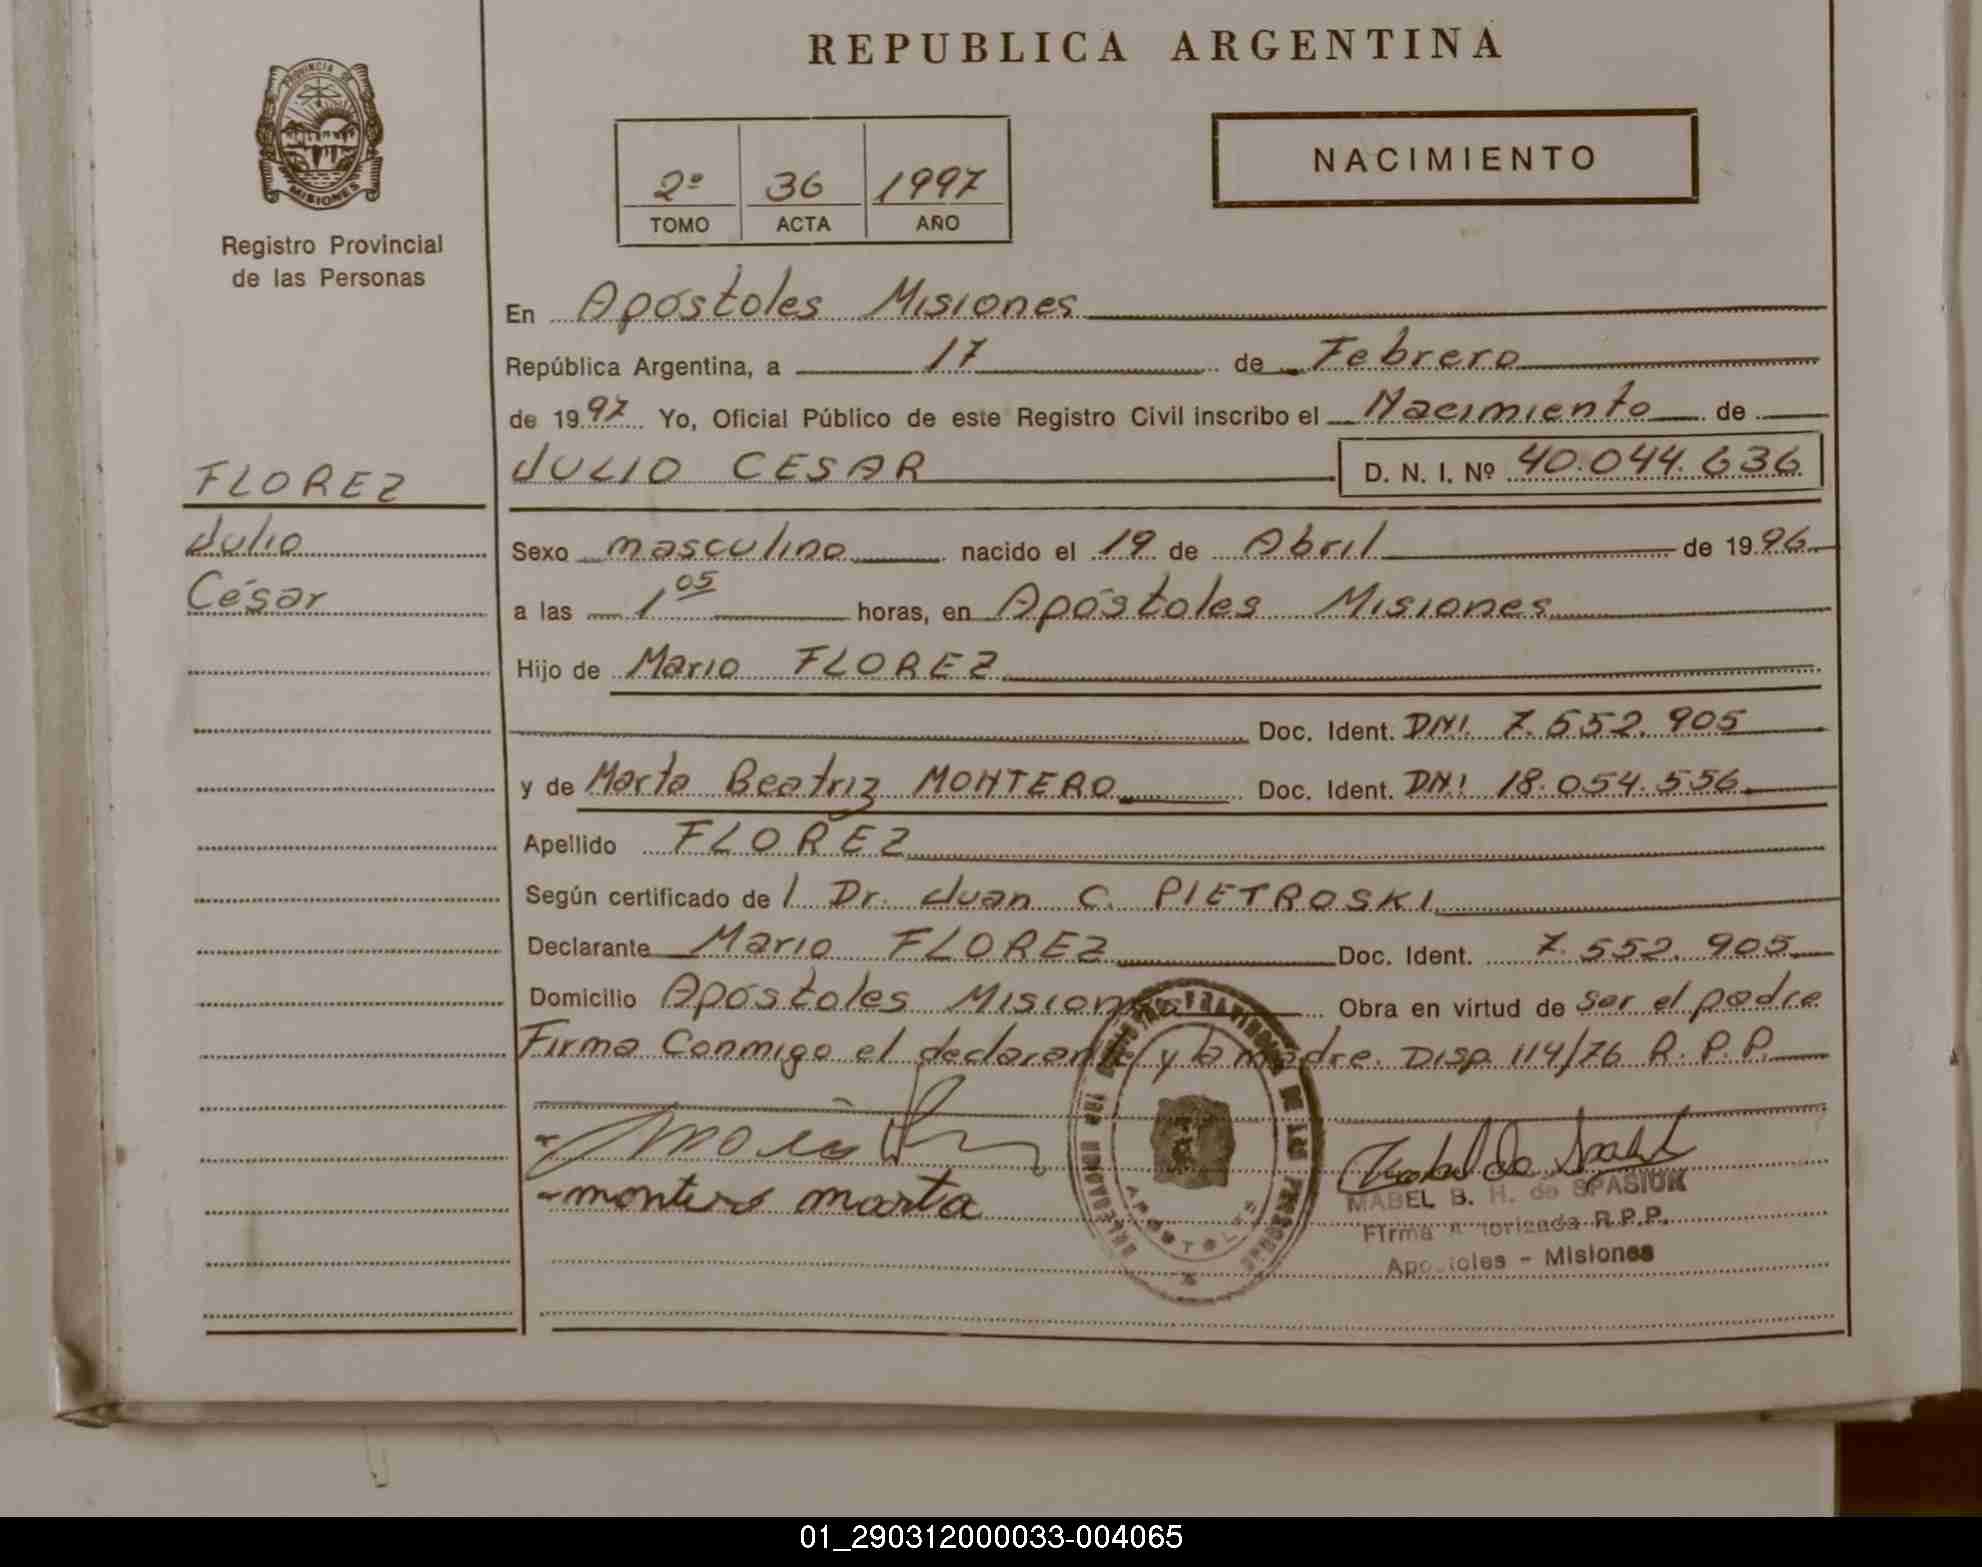 REPUBLICA ARGENTINA
PROVINCIA DE
MISIONES
Registro Provincial
de las Personas
2º 36 1997
TOMO ACTA AÑO
NACIMIENTO
En Apóstoles Misiones
República Argentina, a 17 de Febrero
de 1997 Yo, Oficial Público de este Registro Civil inscribo el Nacimiento de
FLOREZ
Julio
César
JULIO CESAR D. N. I. Nº 40.044.636
Sexo masculino nacido el 19 de Abril de 1996
a las 1 05 horas, en Apóstoles Misiones
Hijo de Mario FLOREZ
Doc. Ident. DNI. 7.552.905
y de Marta Beatriz MONTERO Doc. Ident. DNI 18.054.556
Apellido FLOREZ
Según certificado de l Dr. Juan C. PIETROSKI
Declarante Mario FLOREZ Doc. Ident. 7.552.905
Domicilio Apóstoles Misiones Obra en virtud de ser el padre
Firma Conmigo el declarante y la madre. Disp. 114/76 R. P. P.
montero marta
DE LAS PERSONAS
APOSTOLES
MABEL B. H. de SPASIUK
Firma Autorizada R.P.P.
Apostoles - Misiones
01_290312000033-004065